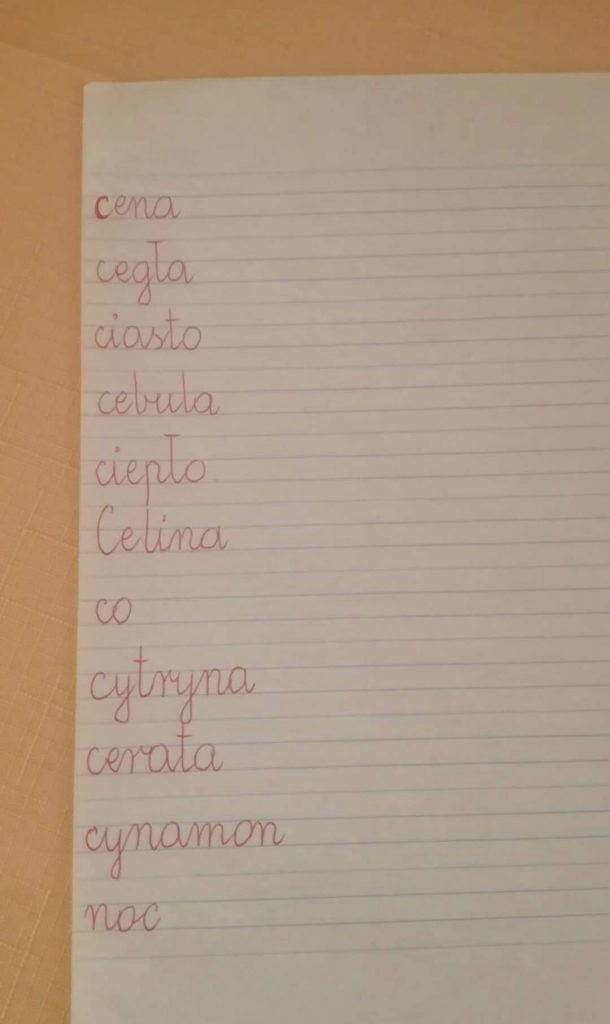 cena
cegła
ciasto
cebula
ciepło
Celina
co
cytryna
cerata
cynamon
noc